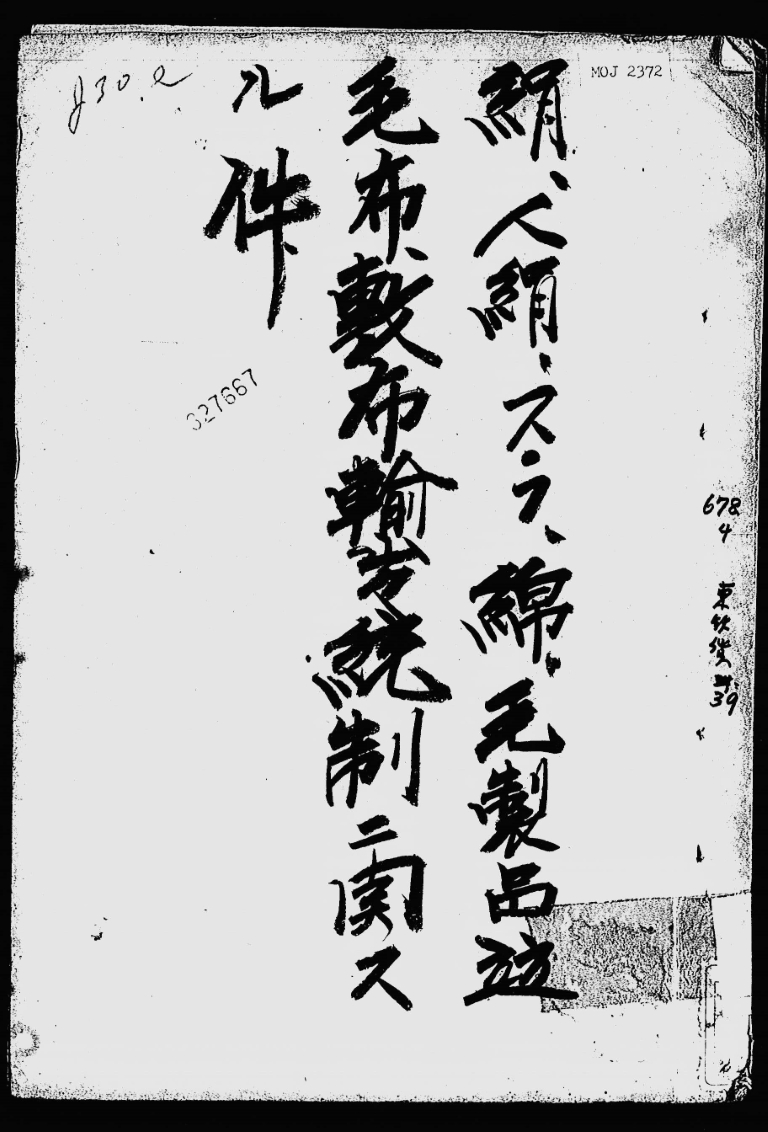 MOJ 2372
絹、人絹、スフ、綿、毛製品竝
毛布、敷布輸出統制ニ関ス
ル件
J30.2
327667
678
4
39